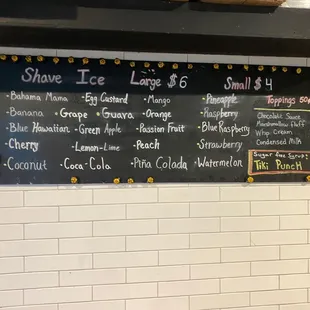 Shave Ice Large $6 Small $4
·Bahama Mama ·Egg Custard ·Mango ·Pineapple
·Banana ·Grape ·Guava ·Orange ·Raspberry
·Blue Hawaiian ·Green Apple ·Passion Fruit ·Blue Raspberry
·Cherry ·Lemon-Lime ·Peach ·Strawberry
·Coconut ·Coca-Cola ·Piña Colada ·Watermelon
Toppings 50¢
Chocolate Sauce
Marshmallow Fluff
Whip Cream
Condensed Milk
Sugar Free Syrup:
Tiki Punch